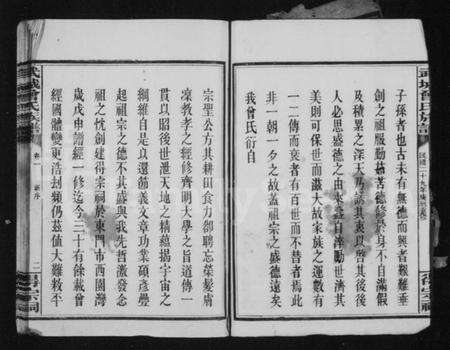 武城曾氏族譜
子孫者也古未有無德而興者艱難垂
創之祖服勤茹苦德修於身不自滿假
及積累之深天乃誘其衷以啓其後後
人必思盛德之由來益自淬勵世濟其
美則可保世而滋大故家族之運數有
一二傳而衰者有百世而不替者焉此
非一朝一夕之故蓋祖宗之盛德遠矣
我曾氏衍自
宗聖公力其耕田食力卻聘忘榮髮膚
凜教孝之經修齊明大學之旨道傳一
貫以昭後世泄天地之精蘊揚宇宙之
綱維自是以還節義文章功業碩彥疊
起祖宗之德不其盛與我先哲激發念
祖之忱創建得宗祠於東門市西園灣
歲戊申譜經一修迄今三十有餘載曾
經國體變更浩刼頻仍茲值大難敉平
武城曾氏族譜
卷一
新序
二
得宗祠